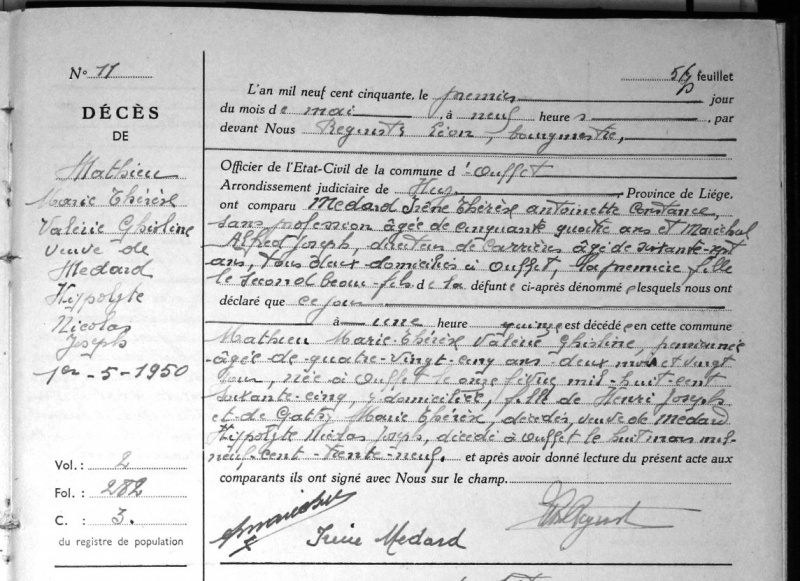 N° 11
DÉCÈS
DE
Mathieu
Marie Thérèse
Valérie Ghisline
veuve de
Medard
Hypolyte
Nicolas
Joseph
1er - 5 - 1950
Vol. : 2
Fol. : 282
C. : 3.
du registre de population
feuillet
L'an mil neuf cent cinquante, le premier jour
du mois de mai, à neuf heure s, par
devant Nous Léon, bourgmestre,
Officier de l'Etat-Civil de la commune d'Ouffet
Arrondissement judiciaire de Huy, Province de Liége,
ont comparu Medard Irène Thérèse Antoinette Constance,
sans profession âgée de cinquante quatre ans et Maréchal
Alfred Joseph, directeur de carrières âgé de soixante-sept
ans, tous deux domiciliés à Ouffet, la première fille
le second beau-fils de la défunte ci-après dénommé e lesquels nous ont
déclaré que ce jour
à une heure quinze est décédée en cette commune
Mathieu Marie-Thérèse Valérie Ghisline, pensionnée
âgée de quatre-vingt-cinq ans deux mois et vingt
jour, née à Ouffet le onze mil-huit-cent
soixante-cinq, y domiciliée, fille de Henri Joseph
et de Marie Thérèse, décédés, veuve de Medard
Hippolyte Nicolas Joseph, décédé à Ouffet le huit mars mil-
neuf-cent-trente-neuf. et après avoir donné lecture du présent acte aux
comparants ils ont signé avec Nous sur le champ.
Irène Medard